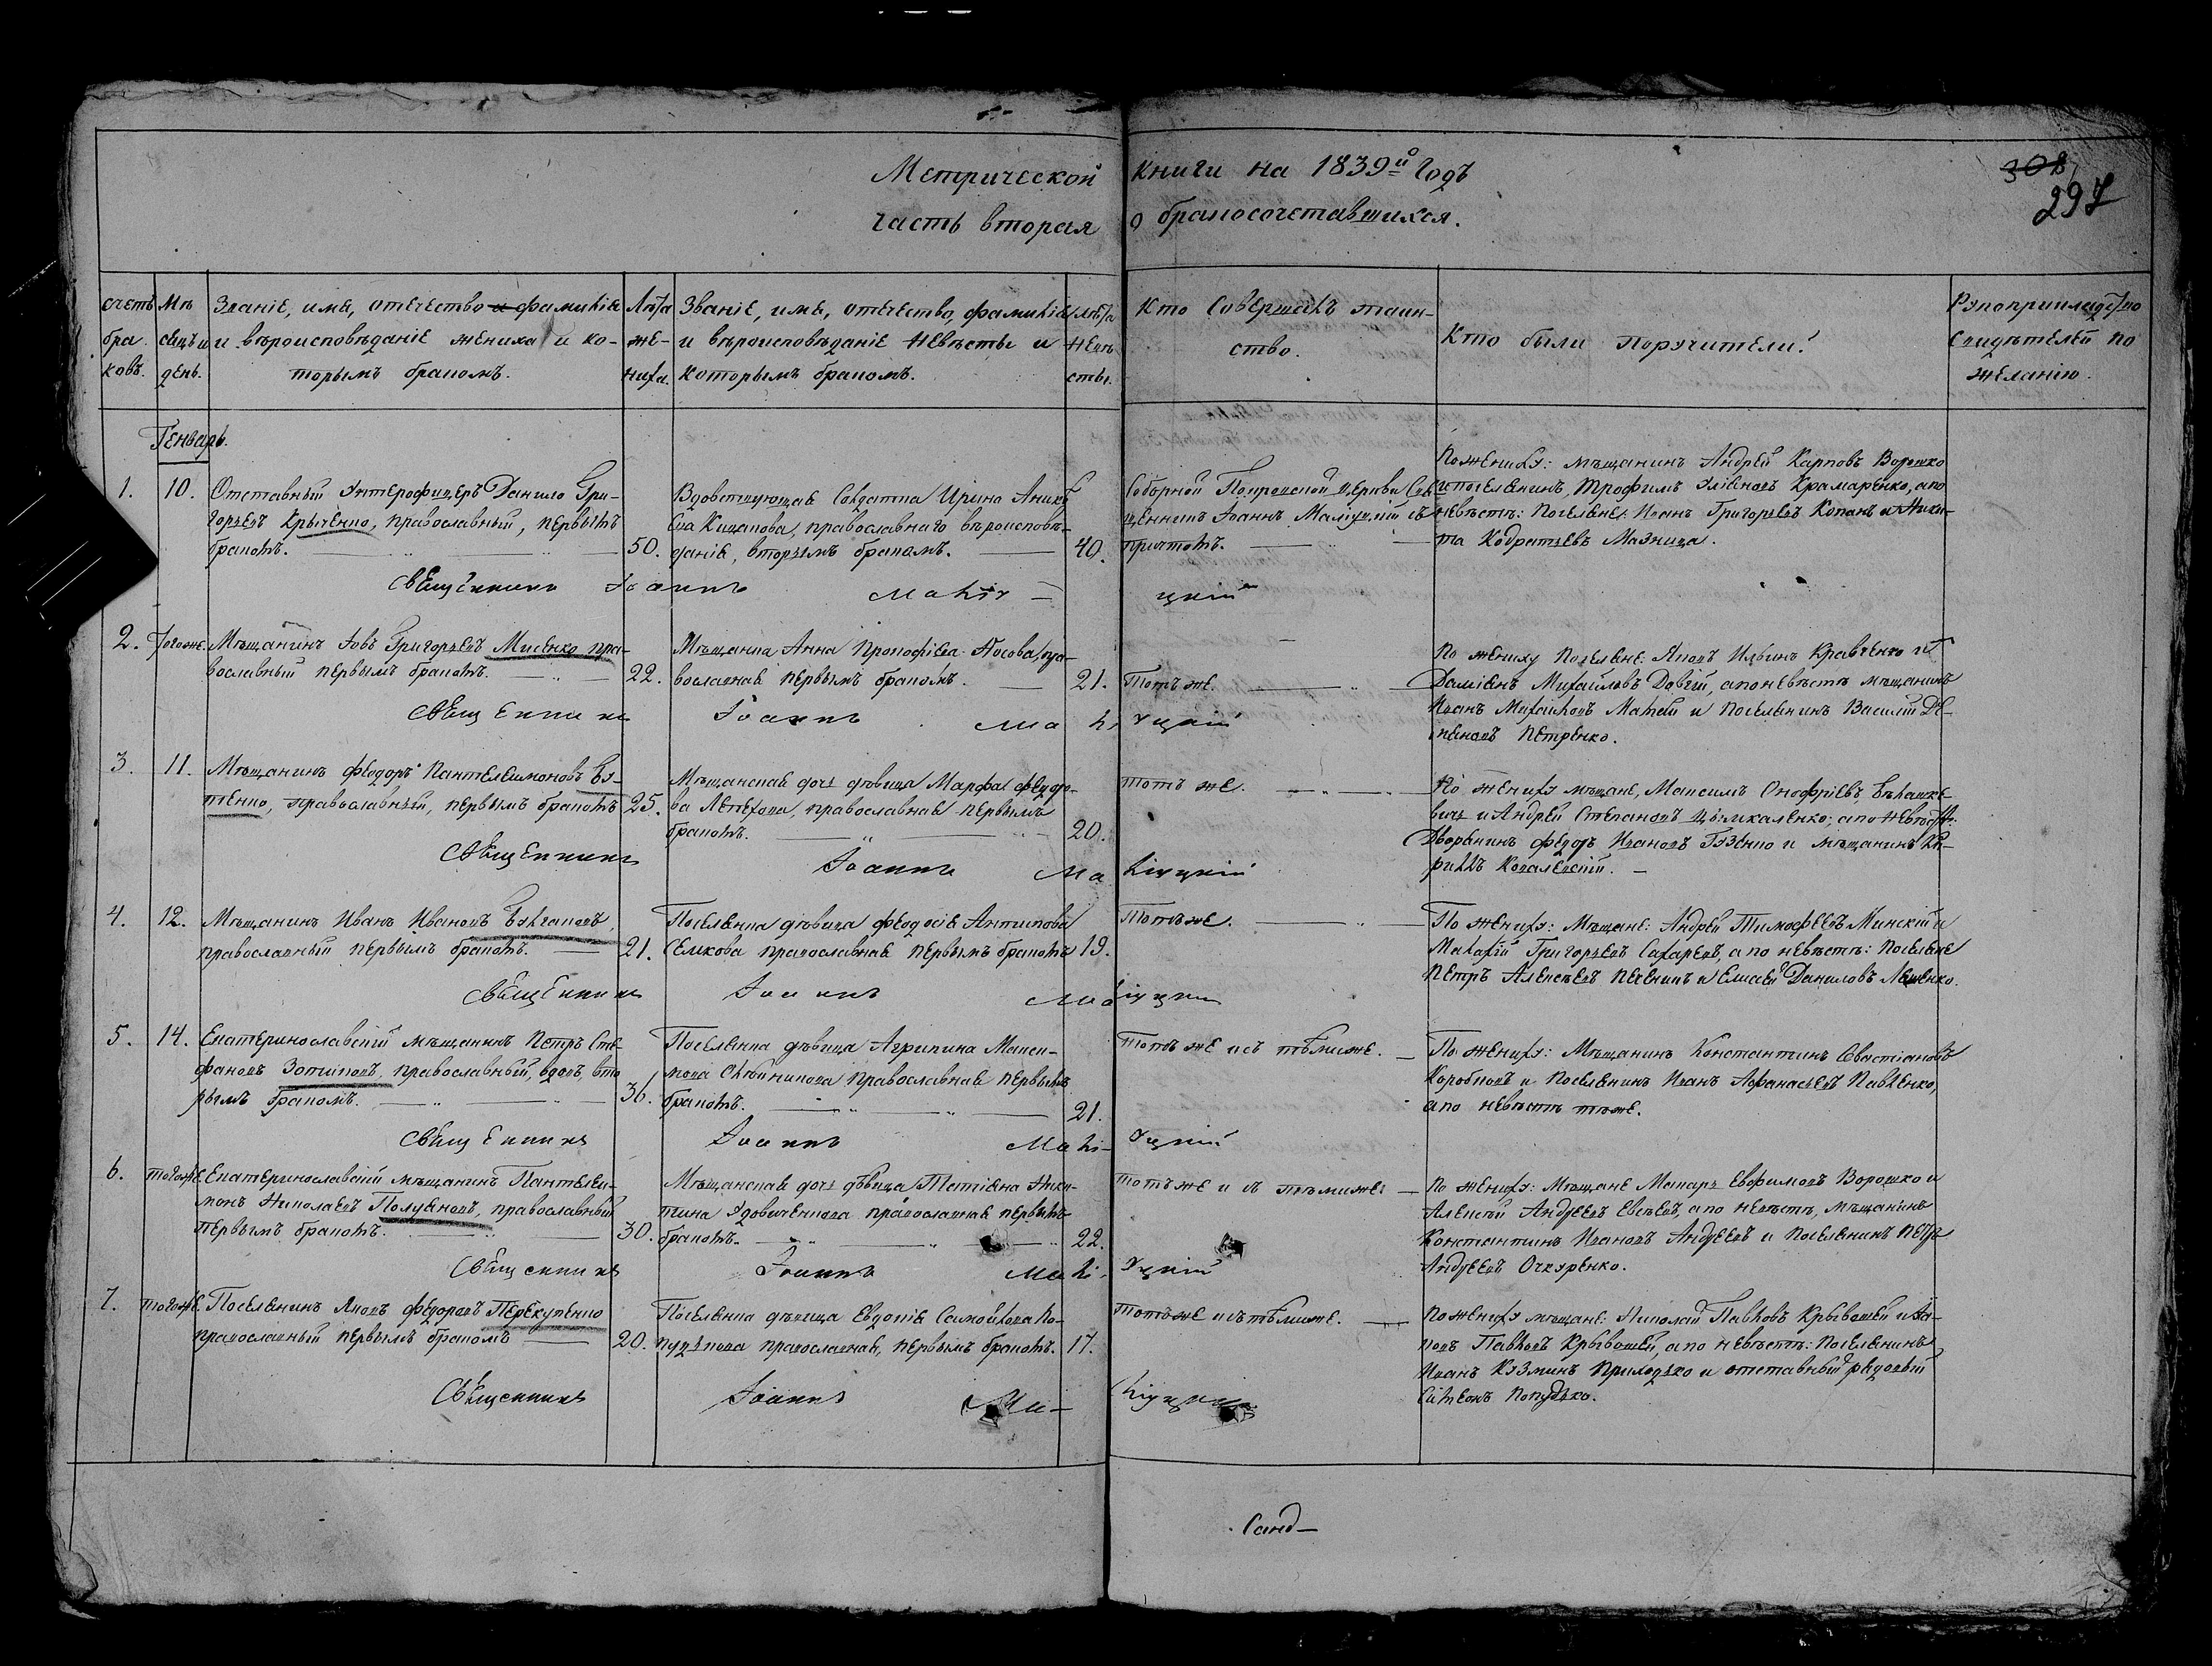 Метрической книги на 1839й Годъ
308
297
часть вторая о бракосочетавшихся.
счетъ бра ковъ.
Мѣ сяцъ и день.
Званіе, имя, отечество и фамилія
и вѣроисповѣданіе жениха и ко-
торымъ бракомъ.
Лѣта
же-
ниха.
Званіе, имя, отечество, фамилія
и вѣроисповѣданіе невѣсты и
которымъ бракомъ.
лѣта
невѣ
сты.
Кто совершалъ таин-
ство.
Кто были поручители?
свидѣтелей по
желанію.
Генварь.
1.
10.
Отставный унтерофицеръ Данило Гри-
горьевъ Крыченко, православный, первымъ
бракомъ.
50.
Вдовствующая Солдатка Ирина
православнаго вѣроисповѣ-
данія, вторымъ бракомъ.
40.
Соборной Покровской Церкви Свя
щенникъ Іоаннъ Маліуцкій съ
причтомъ.
По жениху: мѣщанинъ Андрей Карповъ Ворошко
и поселянинъ Трофимъ Крамаренко, а по
невѣстѣ: Поселяне: Иванъ Григорьевъ Копанъ и Ники-
та Кодратьевъ Мазница.
Священникъ Іоаннъ Маліу- цкій
2.
Тогоже.
Мѣщанинъ Іовъ Григорьевъ Мисенко пра-
вославный первымъ бракомъ.
22.
Мѣщанка Анна Прокофіева Носова, пра-
вославная первымъ бракомъ.
21.
Тотъ же.
По жениху Поселяне: Яковъ Ильинъ Кравченко и
Даміянъ Михайловъ Довгій, а по невѣстѣ мѣщанинъ
Иванъ Михайловъ Малѣй и Поселянинъ Василій
Петренко.
Священникъ Іоаннъ Маліуцкій
3.
11.
Мѣщанинъ Феодоръ Пантелеимоновъ Бу-
тенко, православный, первымъ бракомъ
25.
Мѣщанская дочь дѣвица Марфа Федоро-
ва Лепехова, православная первымъ
бракомъ.
20.
Тотъ же.
По жениху мѣщане, Максимъ Онофріевъ Бѣлашке-
вичъ и Андрей Степановъ Цымкаленко; а по невѣстѣ:
Дворянинъ Федоръ Ивановъ Гузенко и мѣщанинъ Ки-
риллъ Ковалевскій.
Священникъ Іоаннъ Маліуцкій
4.
12.
Мѣщанинъ Иванъ Ивановъ Булгаковъ,
православный первымъ бракомъ.
21.
Поселянка дѣвица Феодосія Антипова
Семкова православная первымъ бракомъ
19.
Тотъ же.
По жениху: Мѣщане: Андрей Тимофеевъ Минскій и
Малафій Григорьевъ Сахаревъ, а по невѣстѣ: Поселяне
Петръ Алексѣевъ и Елисей Даниловъ Лещенко.
Священникъ Іоаннъ Маліуцкій
5.
14.
Екатеринославскій мѣщанинъ Петръ Сте-
фановъ Зотиковъ, православный, вдовъ, вто
рымъ бракомъ.
36.
Поселянка дѣвица Агрипина Макси-
мова православная первымъ
бракомъ.
21.
Тотъ же и съ тѣмиже.
По жениху: Мѣщанинъ Константинъ Севастіановъ
Коробковъ и Поселянинъ Иванъ Афанасьевъ Павленко,
а по невѣстѣ тѣже.
Священникъ Іоаннъ Маліуцкій
6.
тогоже.
Екатеринославскій мѣщанинъ Пантелеи-
монъ Николаевъ Полуяновъ, православный
первымъ бракомъ.
30.
Мѣщанская дочь дѣвица Татіяна Ники-
тина Удовиченкова православная первымъ
бракомъ.
22.
Тотъ же и съ тѣмиже:
По жениху: Мѣщане Макаръ Евфимовъ Ворошко и
Алексѣй Андреевъ Евсѣевъ, а по невѣстѣ, мѣщанинъ
Константинъ Ивановъ Андреевъ и Поселянинъ Петръ
Андреевъ Очкуренко.
Священникъ Іоаннъ Маліуцкій
7.
тогоже.
Поселянинъ Яковъ Федоровъ Перекупенко
православный первымъ бракомъ
20.
Поселянка дѣвица Евдокія Самойлова По-
пудькова православная, первымъ бракомъ.
17.
тотъ же и съ тѣмиже.
По жениху мѣщане: Николай Павловъ Крывошей и Ia-
ковъ Павловъ Крывошей, а по невѣстѣ: Поселянинъ
Иванъ Кузминъ Приходько и отставный рядовый
Попудько.
Священникъ Іоаннъ Маліуцкій